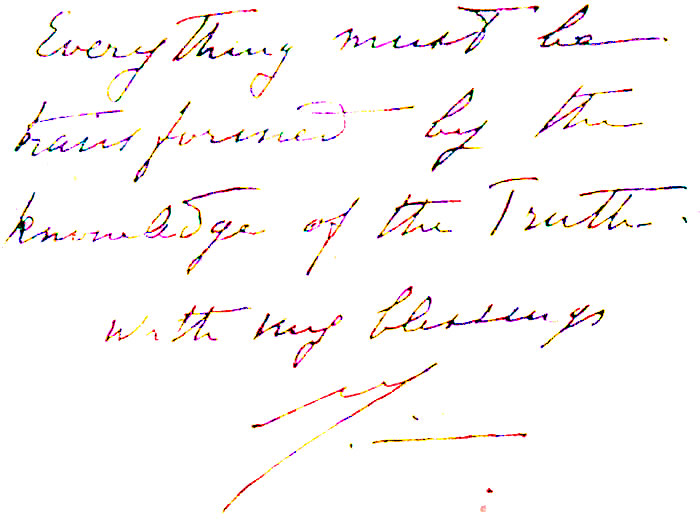 Everything must be
transformed by the
knowledge of the Truth.
with my blessings